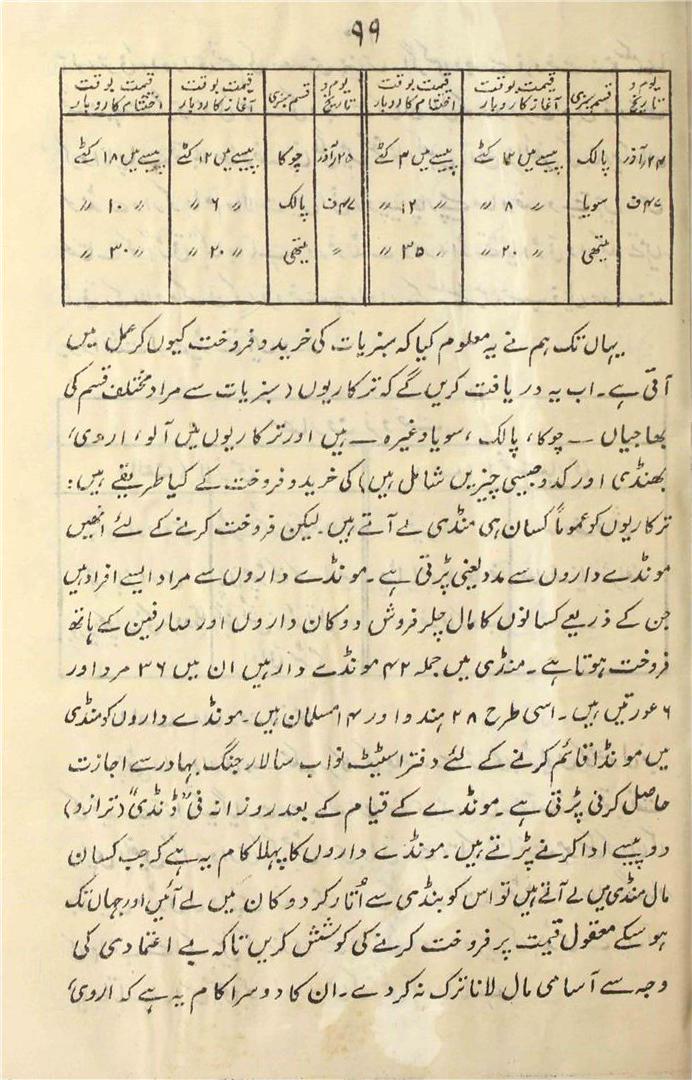 ۹۹
یوم و تاریخ | قسم سبزی | قیمت بوقت آغاز کاروبار | قیمت بوقت اختتام کاروبار | یوم و تاریخ | قسم سبزی | قیمت بوقت آغاز کاروبار | قیمت بوقت اختتام کاروبار
۲۴ر آذر | پالک | پیسے میں ۲ کٹے | پیسے میں ۳ کٹے | ۲۵ر آذر | چوکا | پیسے میں ۱۲ کٹے | پیسے میں ۱۸ کٹے
۴۷ف | سویا | 〃 ۸ 〃 | 〃 ۱۲ 〃 | ۴۷ف | پالک | 〃 ۶ 〃 | 〃 ۱۰ 〃
میتھی | 〃 ۲۰ 〃 | 〃 ۳۵ 〃 | 〃 | میتھی | 〃 ۲۰ 〃 | 〃 ۳۰ 〃
یہاں تک ہم نے یہ معلوم کیا کہ سبزیات کی خرید و فروخت کیوں کر عمل میں
آتی ہے۔ اب یہ دریافت کریں گے کہ ترکاریوں (سبزیات سے مراد مختلف قسم کی
بھاجیاں ــ چوکا، پالک، سویا وغیرہ ــ ہیں اور ترکاریوں میں آلو، اروی،
بھنڈی اور کدو جیسی چیزیں شامل ہیں) کی خرید و فروخت کے کیا طریقے ہیں:
ترکاریوں کو عموماً کسان ہی منڈی لے آتے ہیں۔ لیکن فروخت کرنے کے لئے انھیں
مونڈے داروں سے مدد لینی پڑتی ہے۔ مونڈے داروں سے مراد ایسے افراد ہیں
جن کے ذریعے کسانوں کا مال چلر فروش دوکان داروں اور صارفین کے ہاتھ
فروخت ہوتا ہے۔ منڈی میں جملہ ۴۲ مونڈے دار ہیں ان میں ۳۶ مرد اور
۶ عورتیں ہیں۔ اسی طرح ۲۸ ہندو اور ۱۴ مسلمان ہیں۔ مونڈے داروں کو منڈی
میں مونڈا قائم کرنے کے لئے دفتر اسٹیٹ نواب سالار جنگ بہادر سے اجازت
حاصل کرنی پڑتی ہے۔ مونڈے کے قیام کے بعد روزانہ فی "ڈنڈی" (ترازو)
دو پیسے ادا کرنے پڑتے ہیں۔ مونڈے داروں کا پہلا کام یہ ہے کہ جب کسان
مال منڈی میں لے آتے ہیں تو اس کو بنڈی سے اُتار کر دوکان میں لے آئیں اور جہاں تک
ہو سکے معقول قیمت پر فروخت کرنے کی کوشش کریں تاکہ بے اعتمادی کی
وجہ سے آسامی مال لانا ترک نہ کردے۔ ان کا دوسرا کام یہ ہے کہ اروی،